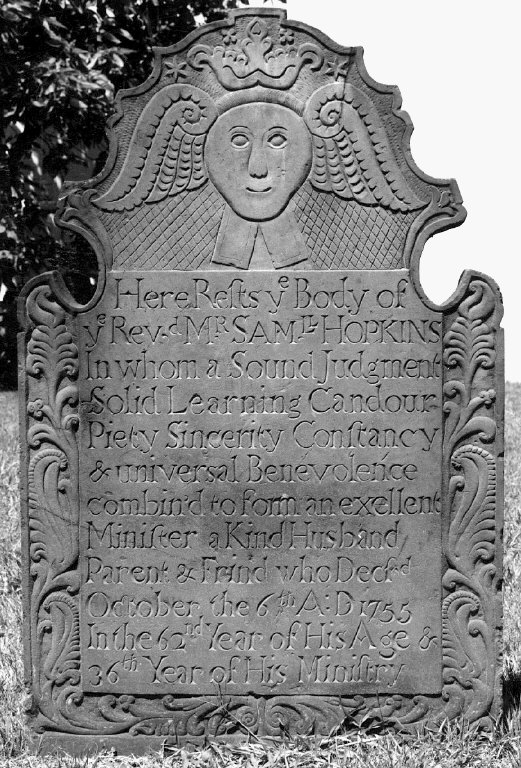 Here Rests yᵉ Body of
yᵉ Revᵈ Mᴿ SAMᴸᴸ HOPKINS
In whom a Sound Judgment
Solid Learning Candour
Piety Sincerity Constancy
& universal Benevolence
combin'd to form an exellent
Minister a Kind Husband
Parent & Frind who Decsᵈ
October the 6ᵗʰ A:D 1755
In the 62ⁿᵈ Year of His Age &
36ᵗʰ Year of His Ministry